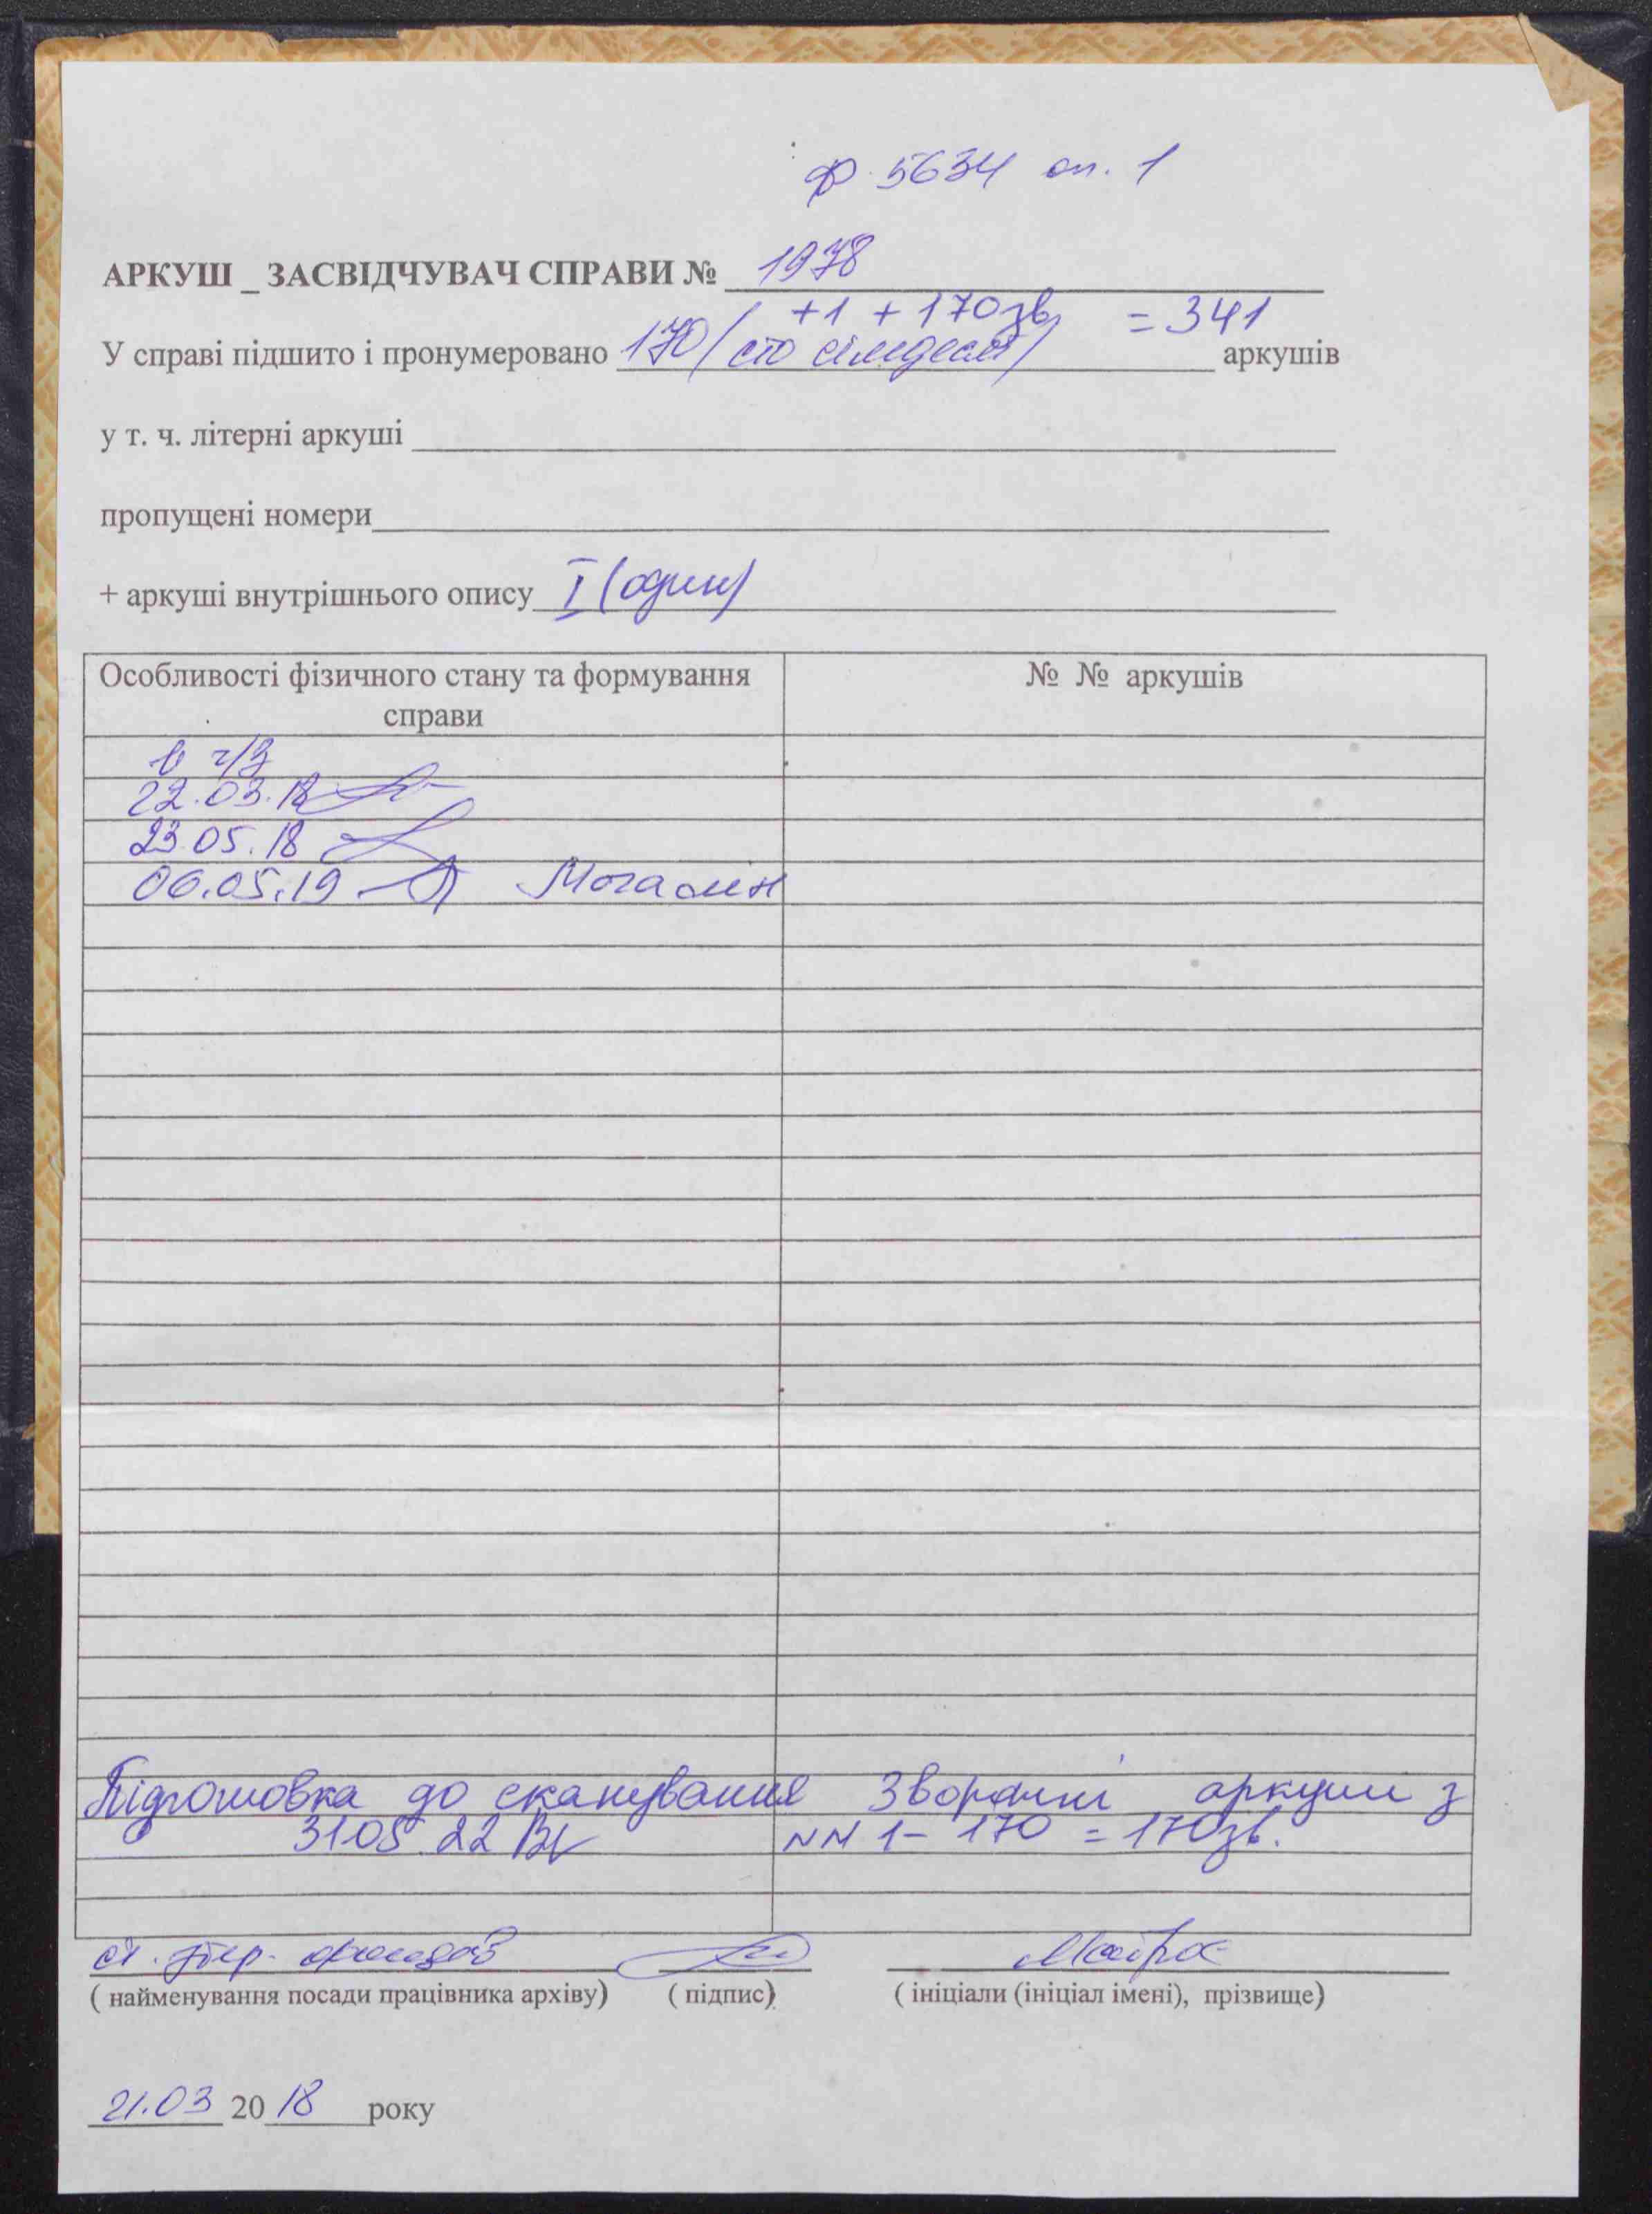 ф. 5634 оп. 1
АРКУШ _ ЗАСВІДЧУВАЧ СПРАВИ № 1978
+1 + 170зв = 341
У справі підшито і пронумеровано 170 (сто сімдесят) аркушів
у т. ч. літерні аркуші
пропущені номери
+ аркуші внутрішнього опису I (один)
Особливості фізичного стану та формування справи
№ № аркушів
в ч/з
22.03.18
23.05.18
06.05.19
Підготовка до сканування Зворотні аркуші з
31.05.22 NN 1 - 170 = 170зв.
ст.
( найменування посади працівника архіву) ( підпис) ( ініціали (ініціал імені), прізвище)
21.03 2018 року